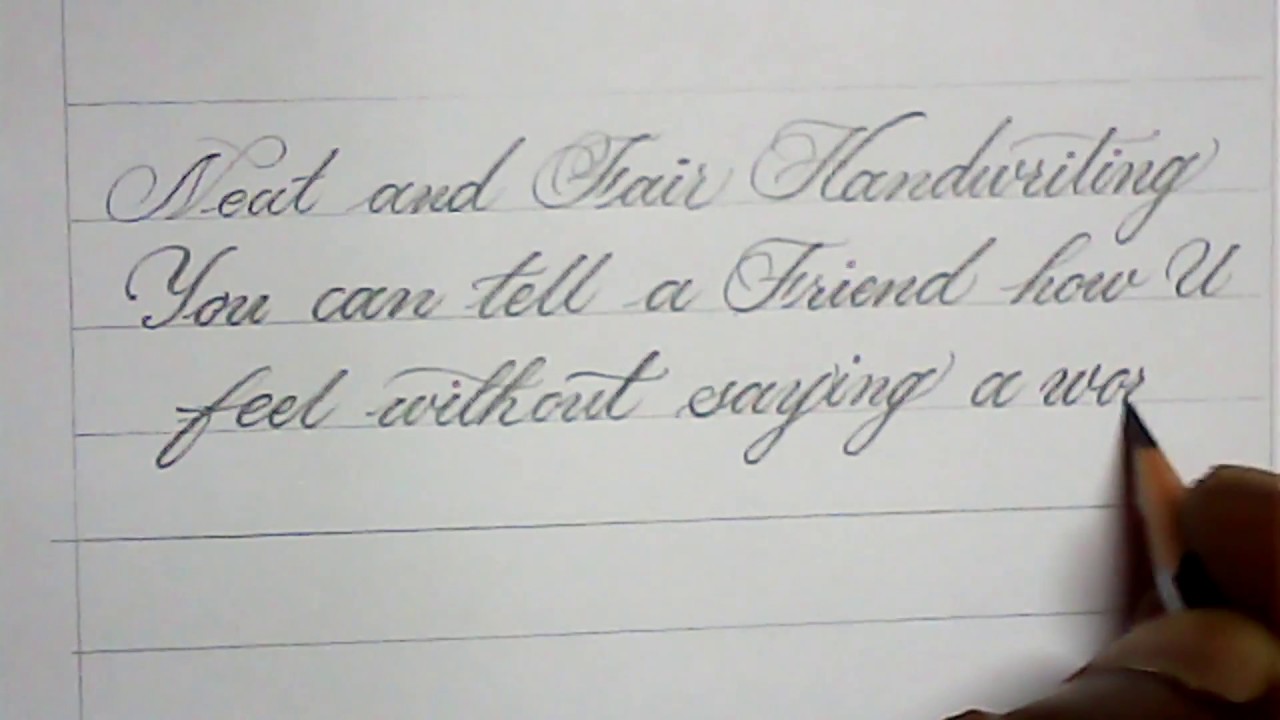 Neat and Fair Handwriting
You can tell a Friend how U
feel without saying a wor